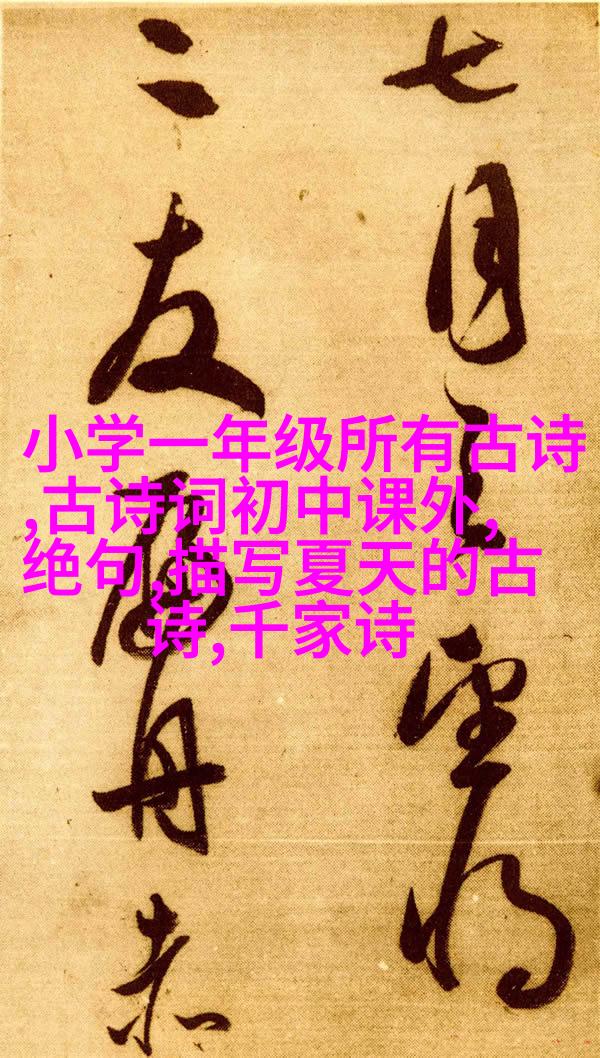 七月望将
二友舟赤
小学一年级所有古诗
,古诗词初中课外,
绝句,描写夏天的古
诗,千家诗